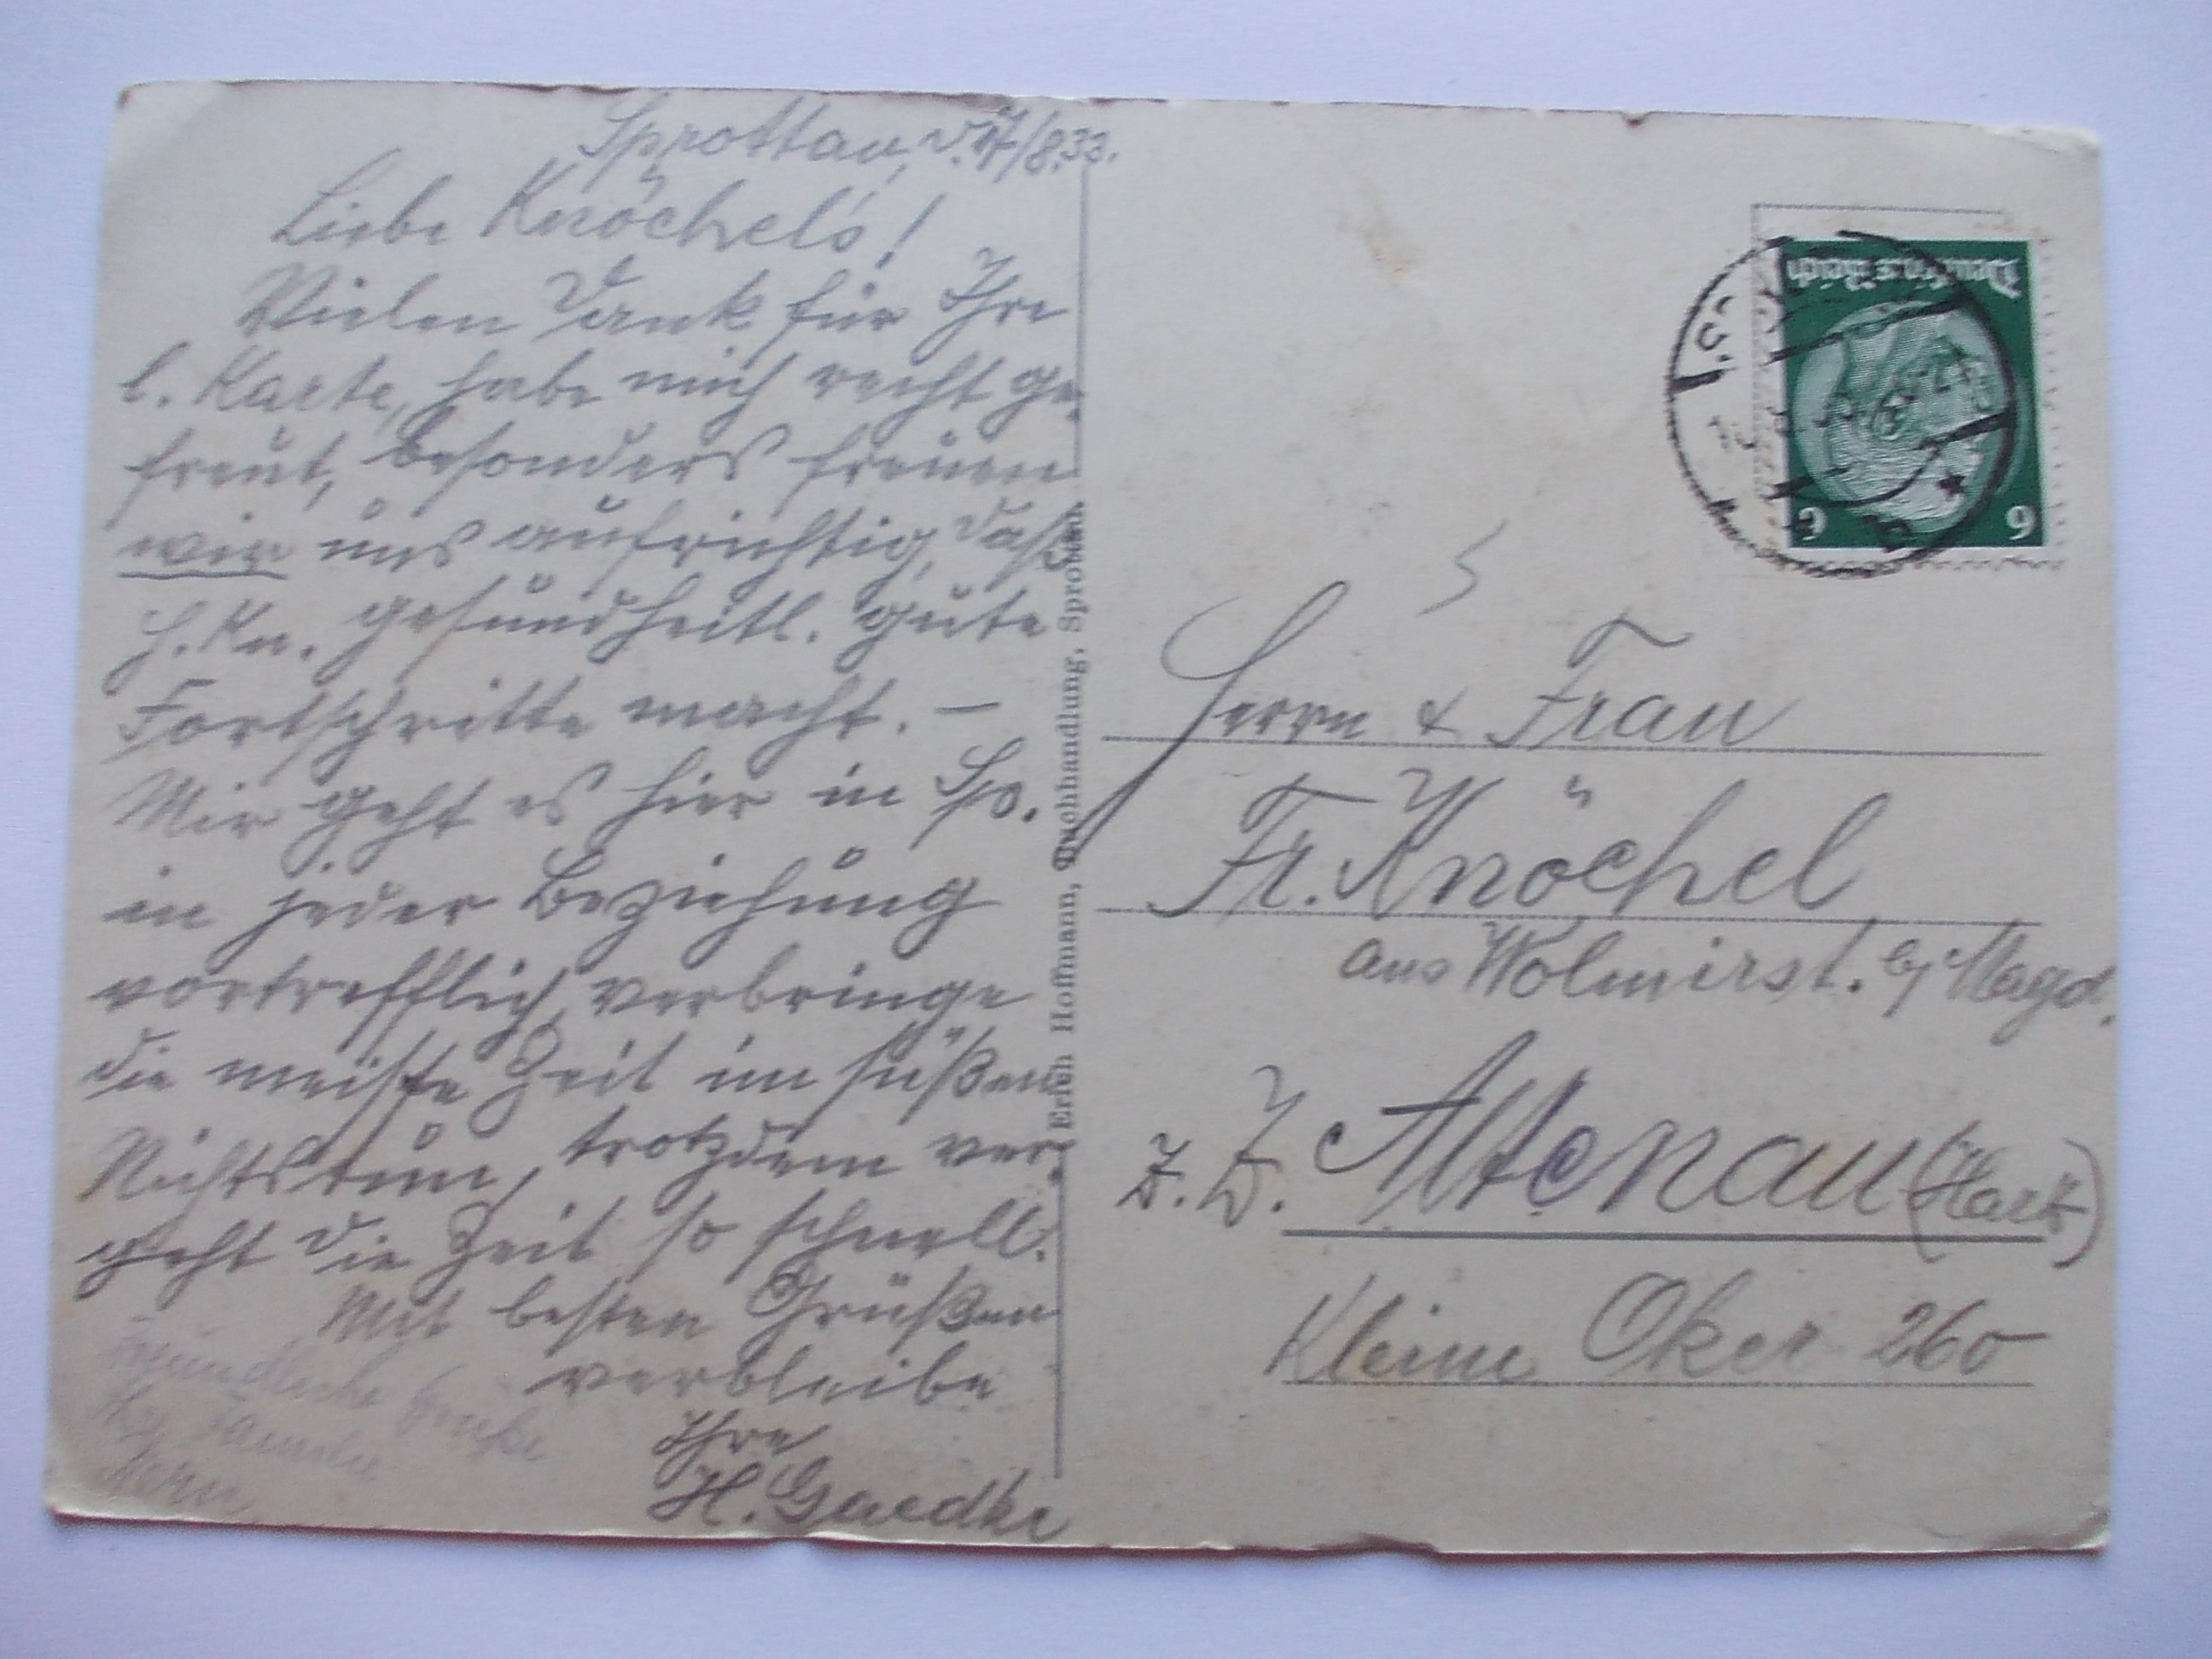 Sprottau, d. 17/8.33.
Liebe Knöchel's!
Vielen Dank für Ihre
l. Karte, habe mich recht ge-
freut, besonders freuen
wir uns aufrichtig, daß
H. Kn. gesundheitl. gute
Fortschritte macht. –
Mir geht es hier in Sp.
in jeder Beziehung
vortrefflich, verbringe
die meiste Zeit im süßen
Nichtstun, trotzdem ver-
geht die Zeit so schnell.
Mit besten Grüßen
verbleibe
Ihre
H. Gaedke
Freundliche Grüße
Familie
Kern
Erich Hoffmann, Buchhandlung, Sprottau
Deutsches Reich
6 6
Herrn & Frau
Fr. Knöchel
aus Wolmirst. b/ Magd.
z. Z. Altenau (Harz)
Kleine Oker 260